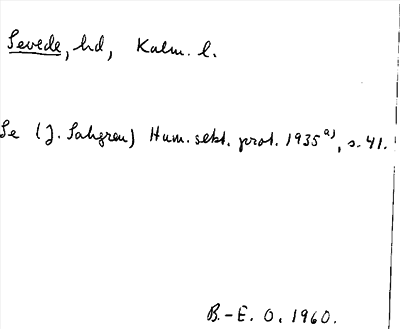 Sevede, hd, Kalm. l.
Se (J. Sahgren) Hum. sekt. prot. 1935 a), s. 41.
B.-E. O. 1960.